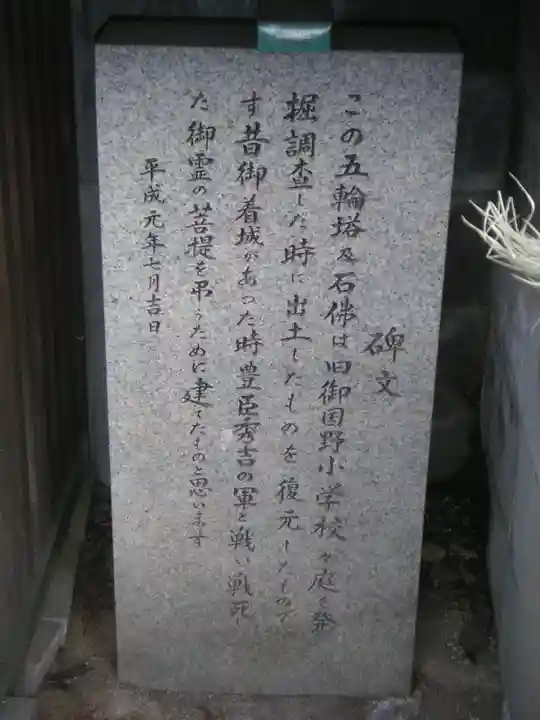 碑文
この五輪塔及石佛は旧御国野小学校々庭を発
掘調査した時に出土したものを復元したもので
す昔御着城があった時豊臣秀吉の軍と戦い戦死し
た御霊の菩提を弔うために建てたものと思います
平成元年七月吉日